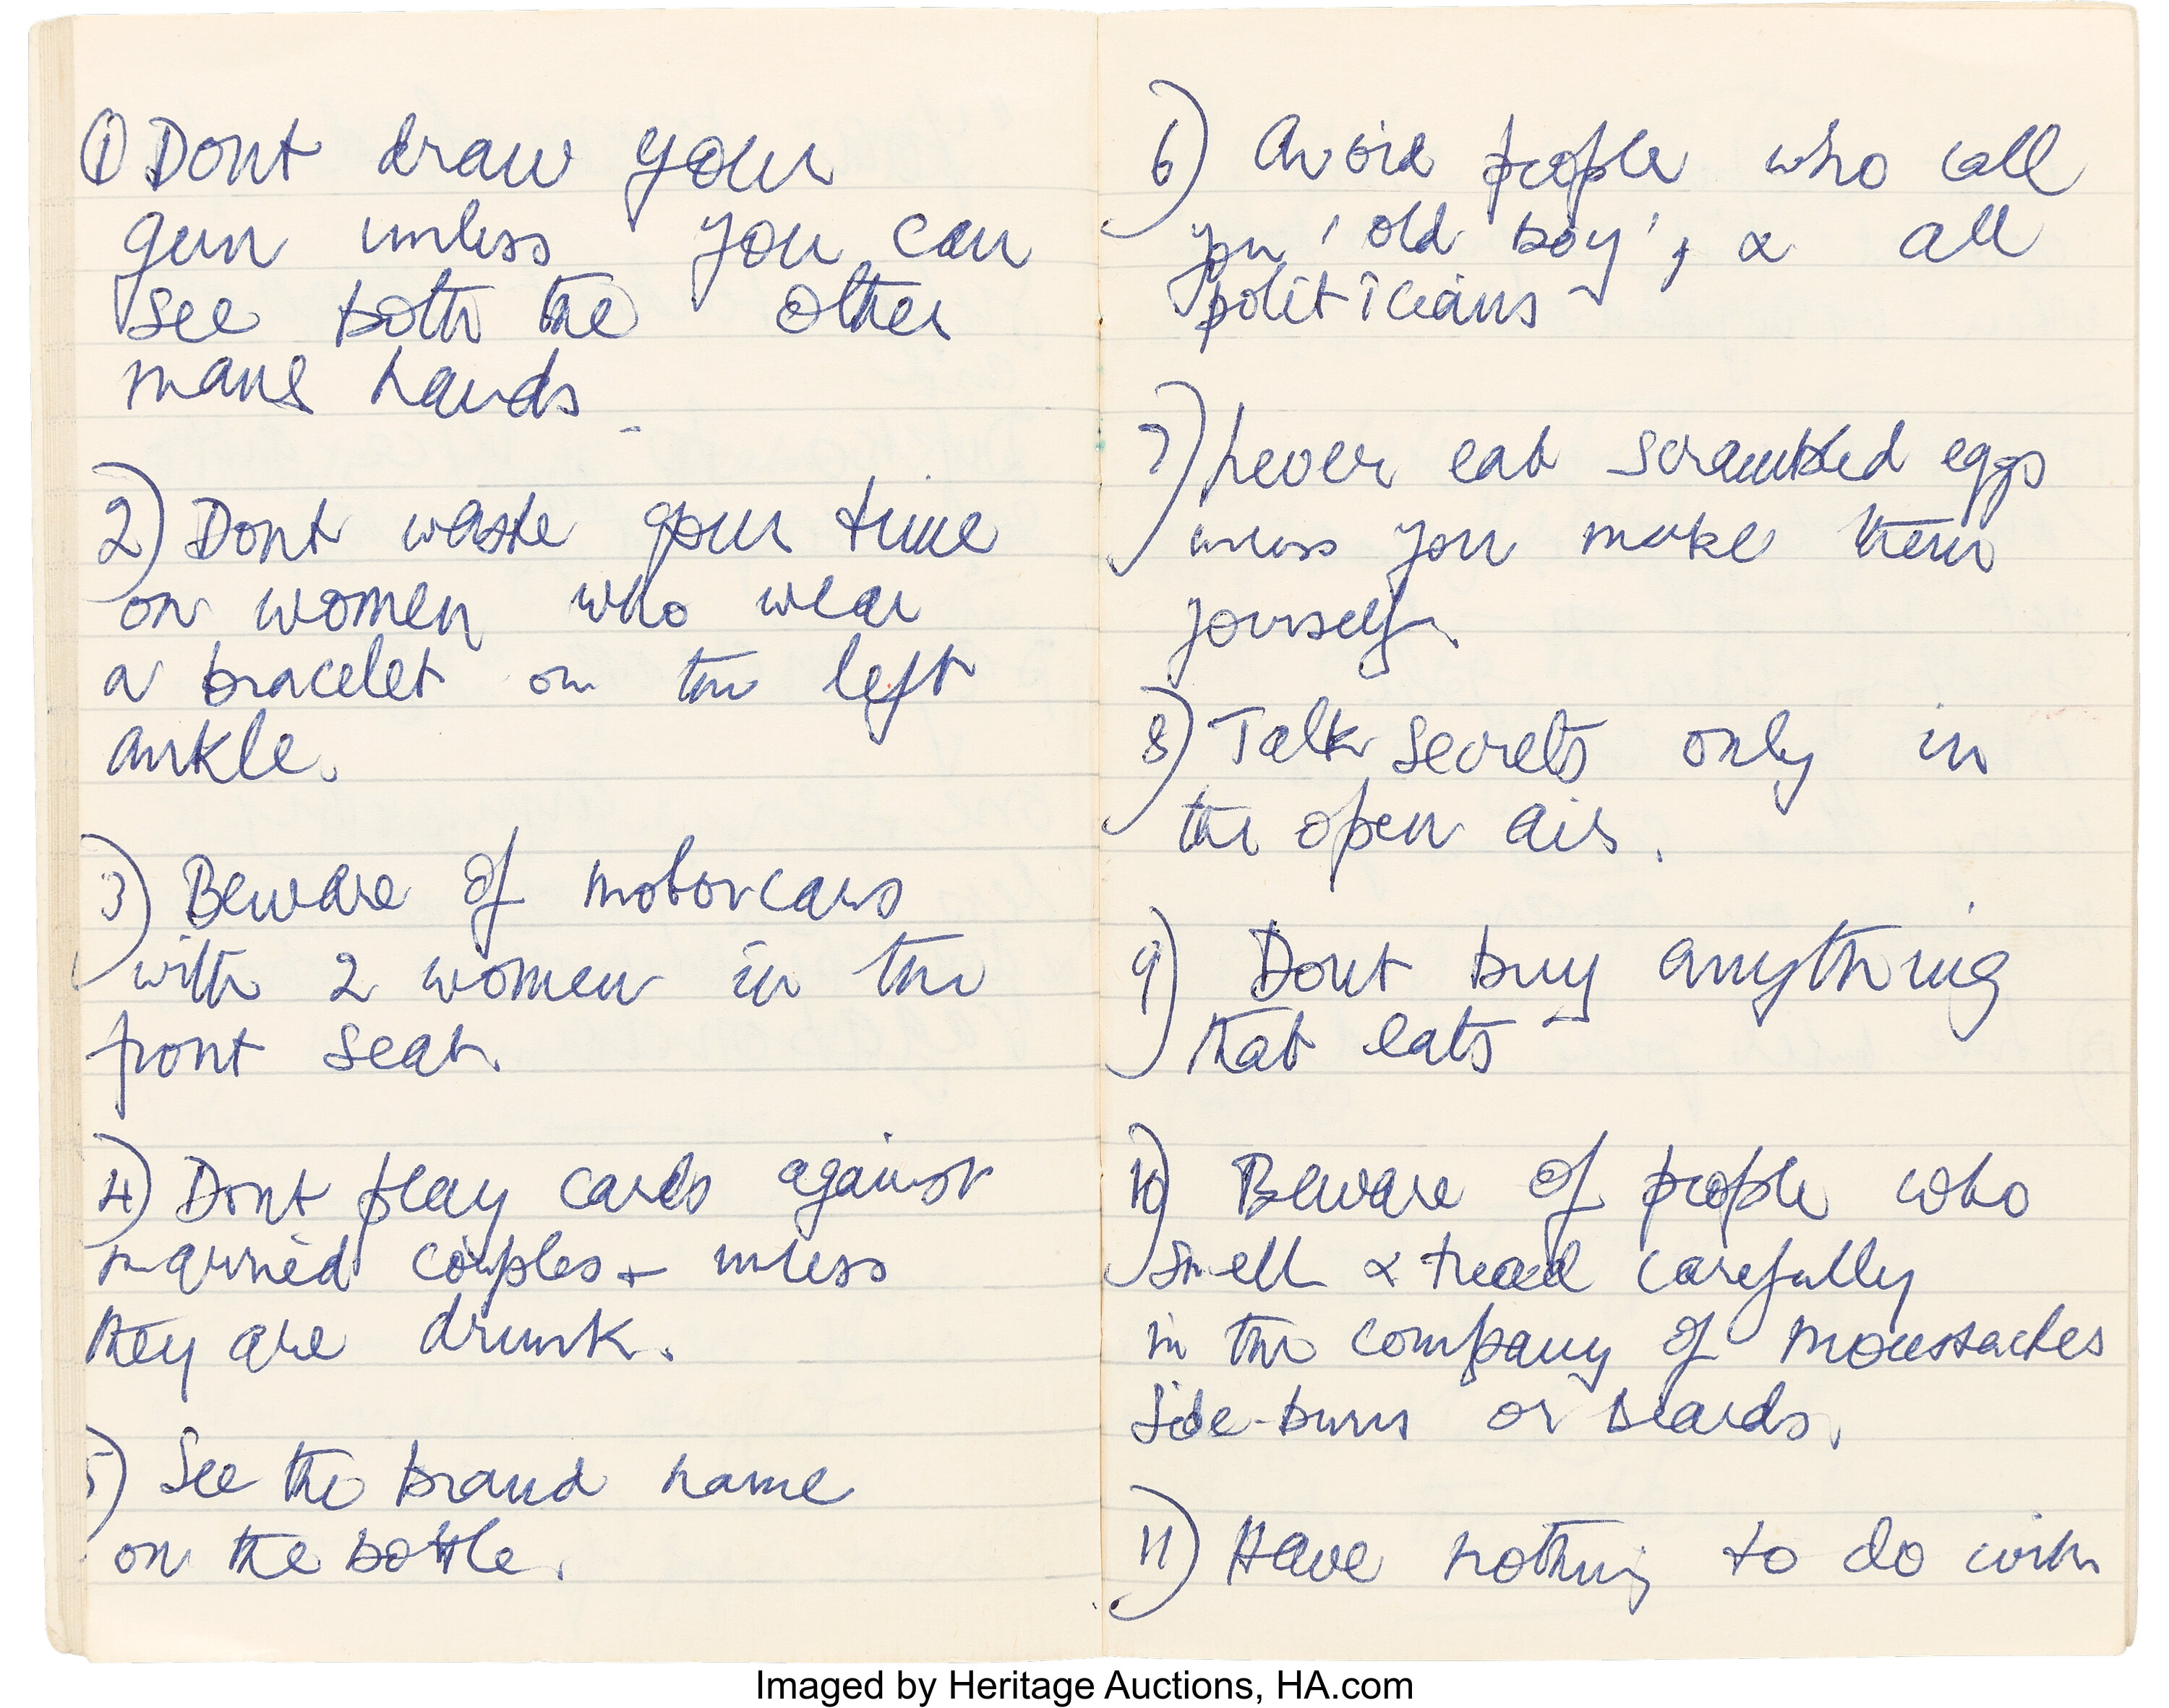 ① Dont draw your
gun unless you can
see both the other
mans hands.
2) Dont waste your time
on women who wear
a bracelet on the left
ankle.
3) Beware of motorcars
with 2 women in the
front seat.
4) Dont play cards against
married couples unless
they are drunk.
5) See the brand name
on the bottle.
6) Avoid people who call
you 'old boy', & all
politicians
7) Never eat scrambled eggs
unless you make them
yourself.
8) Talk secrets only in
the open air.
9) Dont buy anything
that eats
10) Beware of people who
smell & tread carefully
in the company of moustaches
side-burns or beards.
11) Have nothing to do with
Imaged by Heritage Auctions, HA.com